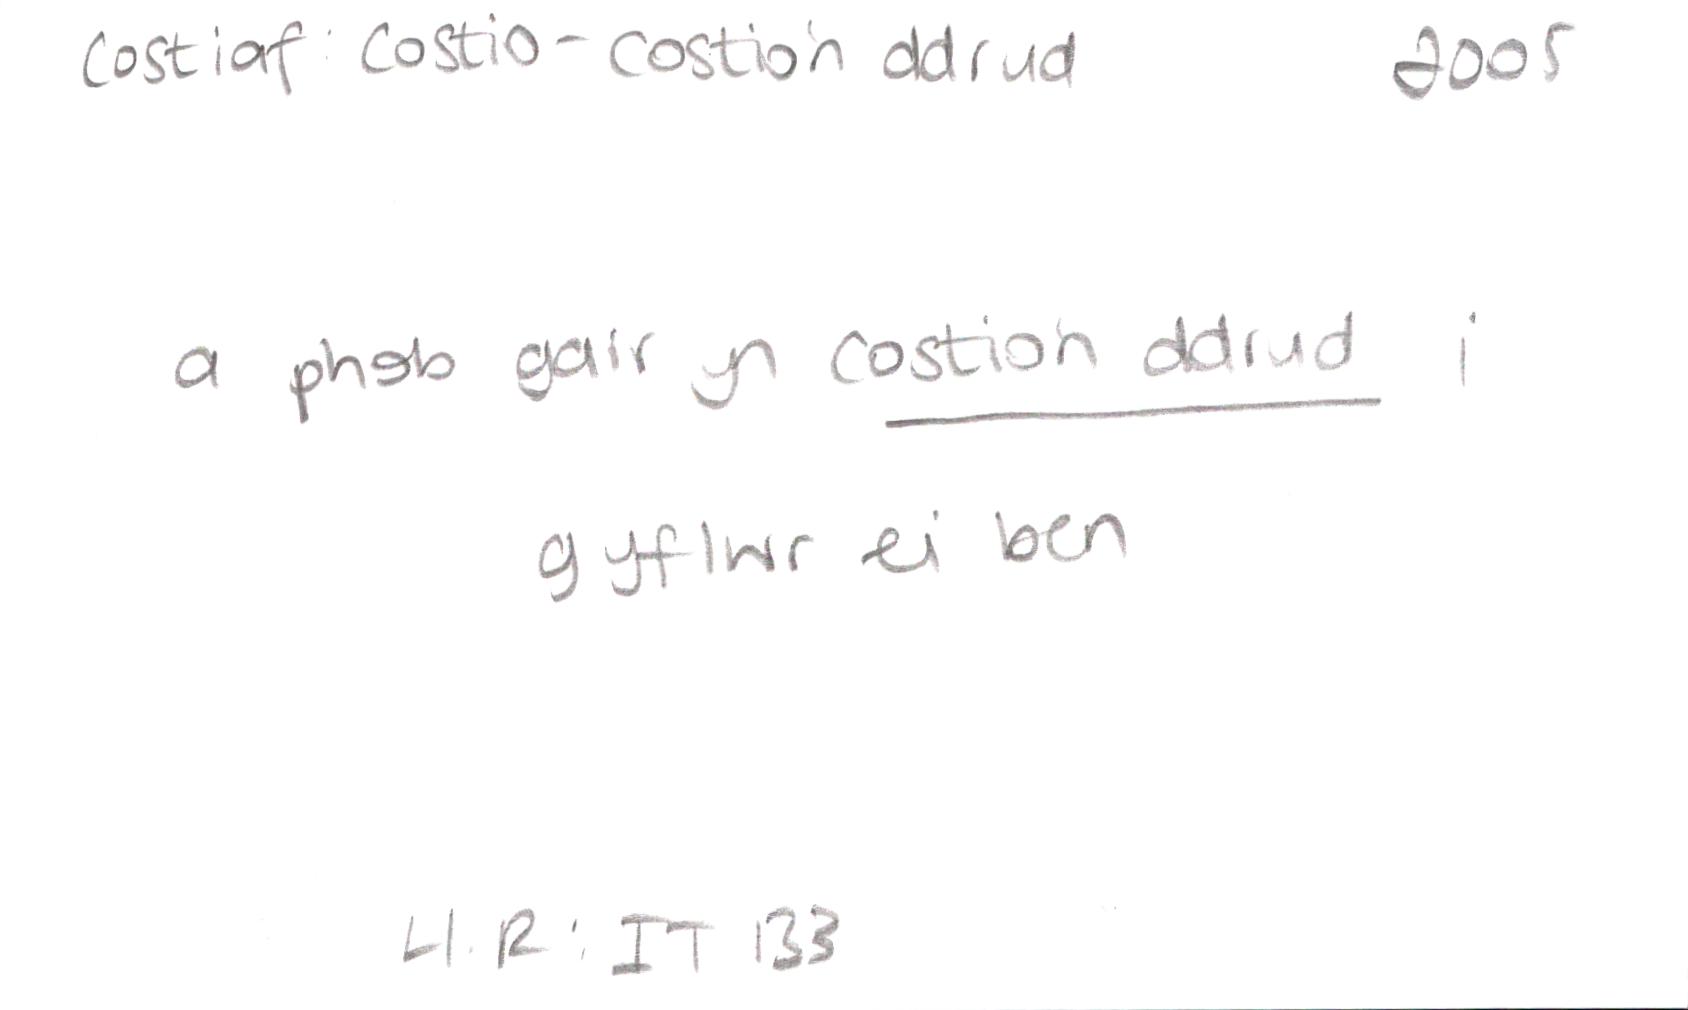 costiaf: costio - costio'n ddrud 2005
a phob gair yn costio'n ddrud i
gyflwr ei ben
Ll.R: IT 133